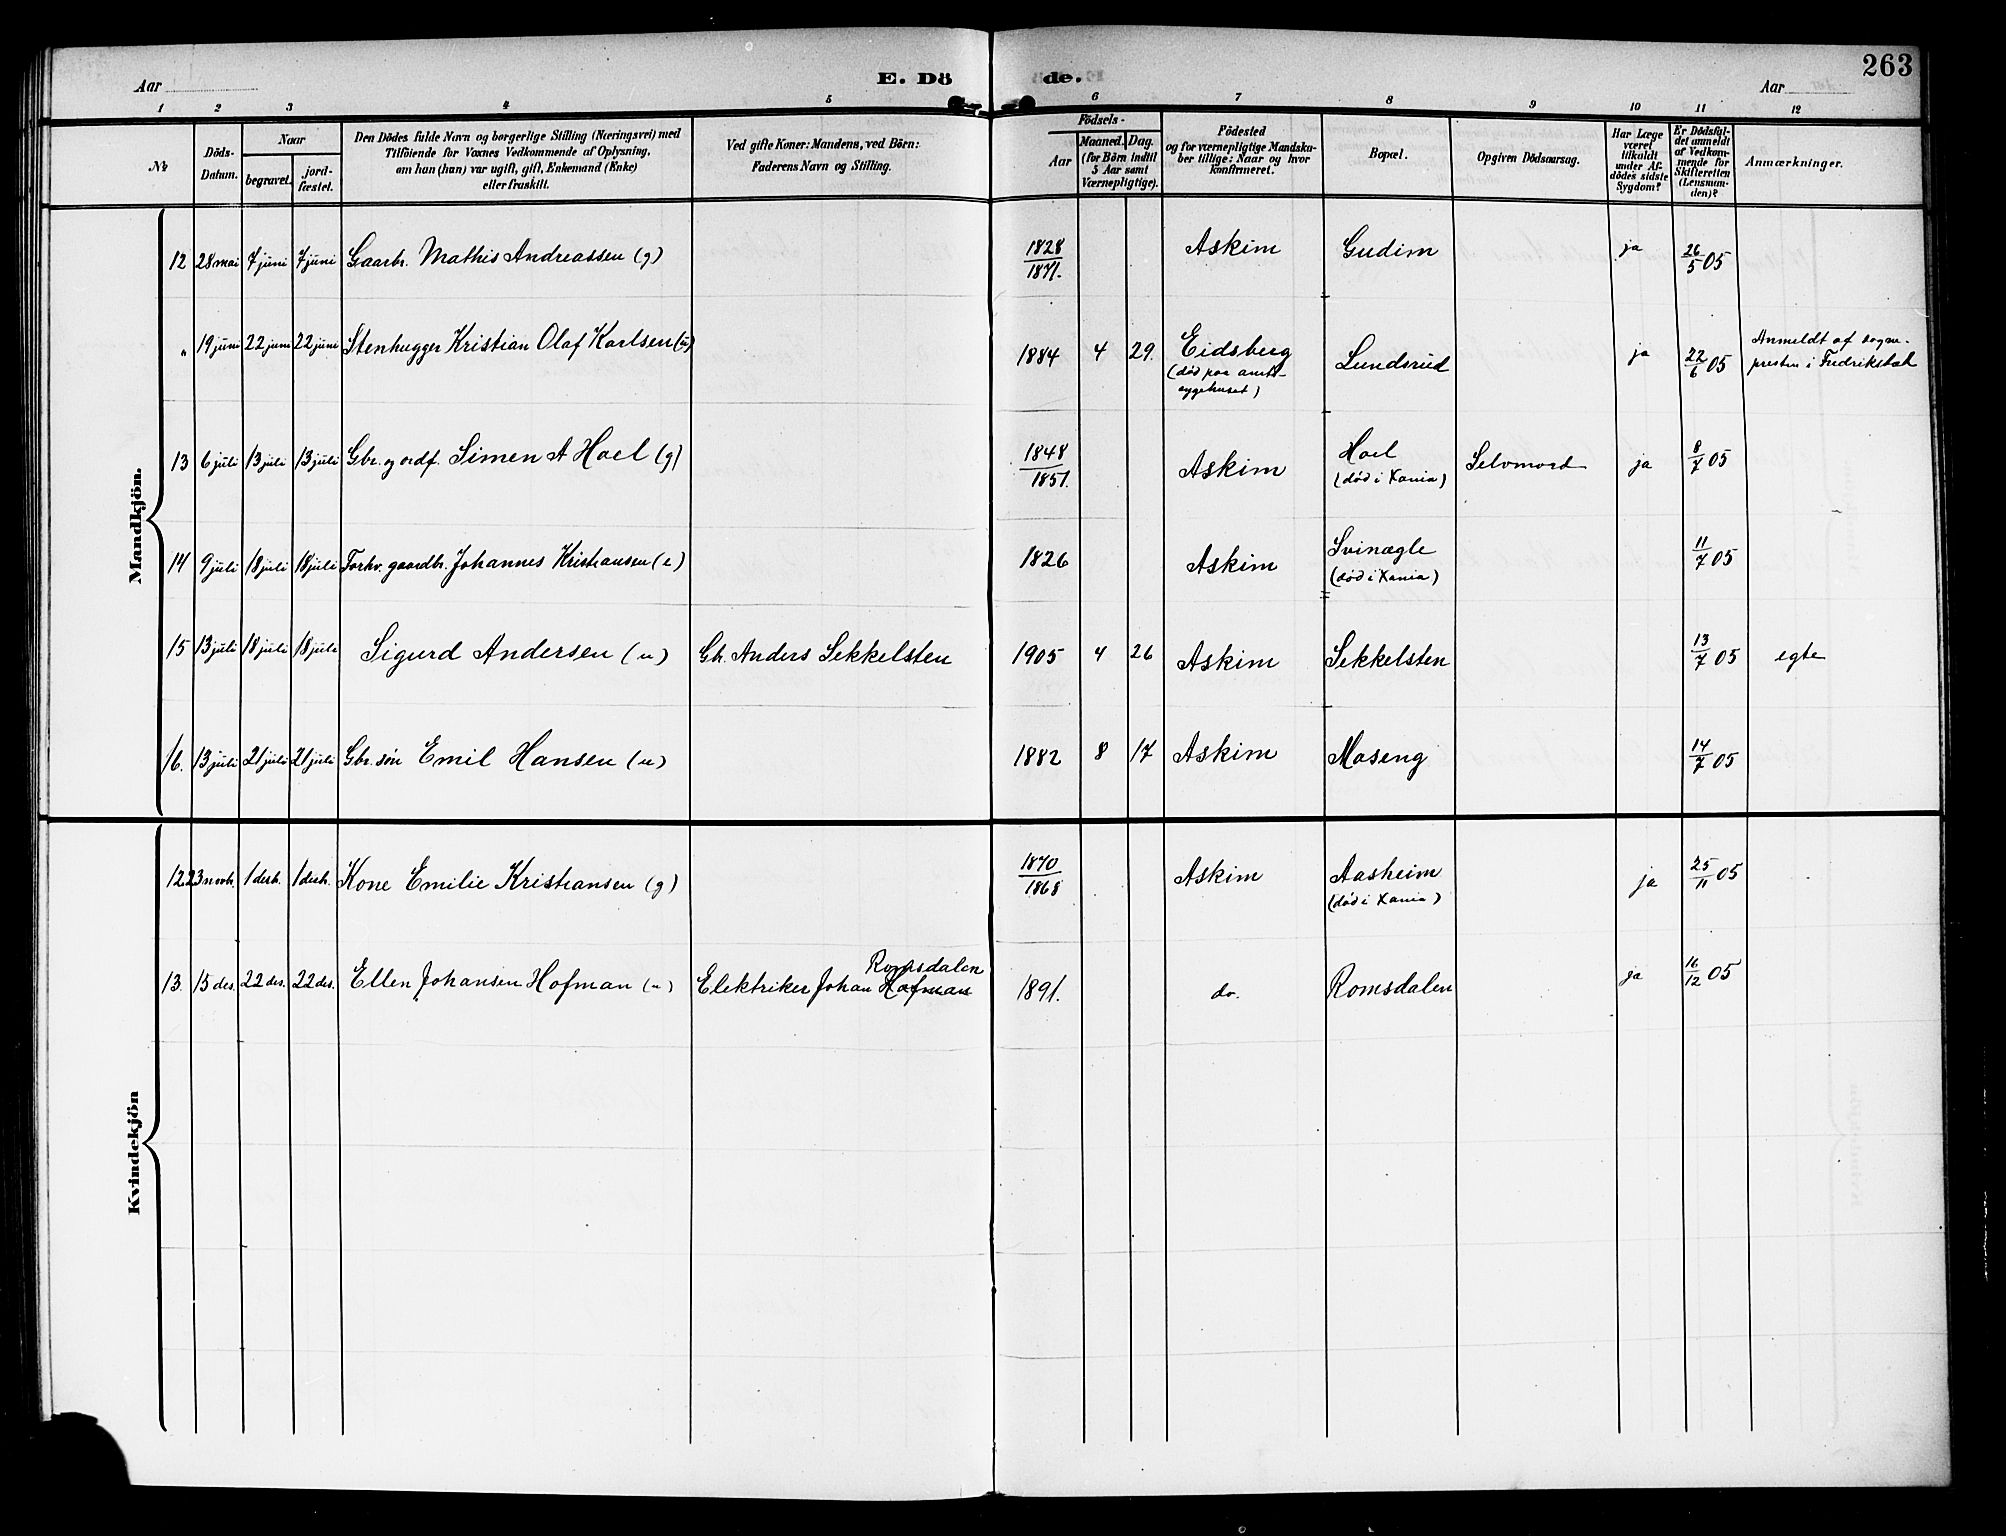 263
Aar
E. Dö de.
Aar
1 2 3 4 5 6 7 8 9 10 11 12
No
Döds-Datum.
Naar
begravet.
jord-fæstet.
Den Dödes fulde Navn og borgerlige Stilling (Næringsvei) med
Tilföiende for Voxnes Vedkommende af Oplysning,
om han (hun) var ugift, gift, Enkemand (Enke)
eller fraskilt.
Ved gifte Koner: Mandens, ved Börn:
Faderens Navn og Stilling.
Födsels-
Aar
Maaned. Dag.
(for Börn indtil
5 Aar samt
Værnepligtige).
Födested
og for værnepligtige Mandska-
ber tillige: Naar og hvor
konfirmeret.
Bopæl.
Opgiven Dödsaarsag.
Har Læge
været
tilkaldt
under Af-
dödes sidste
Sygdom?
Er Dödsfal-
det anmeldt
af Vedkom-
mende for
Skifteretten
(Lensman-
den)?
Anmærkninger.
Mandkjön.
12 28 mai 7 juni 7 juni Gaarbr. Mathis Andreassen (g) 1828 / 1871. Askim Gudim ja 26/5 05
" 19 juni 22 juni 22 juni Stenhugger Kristian Olaf Karlsen (u) 1884 4 29. Eidsberg (død paa amts-sygehuset) Lundsrud ja 22/6 05 Anmeldt af sogne-presten i Fredrikstad
13 6 juli 13 juli 13 juli Gbr. og ordf. Simen A Hoel (g) 1848 / 1851. Askim Hoel (død i Xania) Selvmord ja 8/7 05
14 9 juli 18 juli 18 juli Forhv. gaardbr. Johannes Kristiansen (e) 1826 Askim Svinægle (død i Xania) 11/7 05
15 13 juli 18 juli 18 juli Sigurd Andersen (u) Gb. Anders Sekkelsten 1905 4 26 Askim Sekkelsten 13/7 05 egte
16. 13 juli 21 juli 21 juli Gbr. søn Emil Hansen (u) 1882 8 17 Askim Moseng 14/7 05
Kvindekjön
12 23 novb. 1 desb. 1 desb. Kone Emilie Kristiansen (g) 1870 / 1868 Askim Aasheim (død i Xania) ja 25/11 05
13. 15 des. 22 des. 22 des. Ellen Johansen Hofman (u) Elektriker Johan Hofman Romsdalen 1891. do. Romsdalen ja 16/12 05